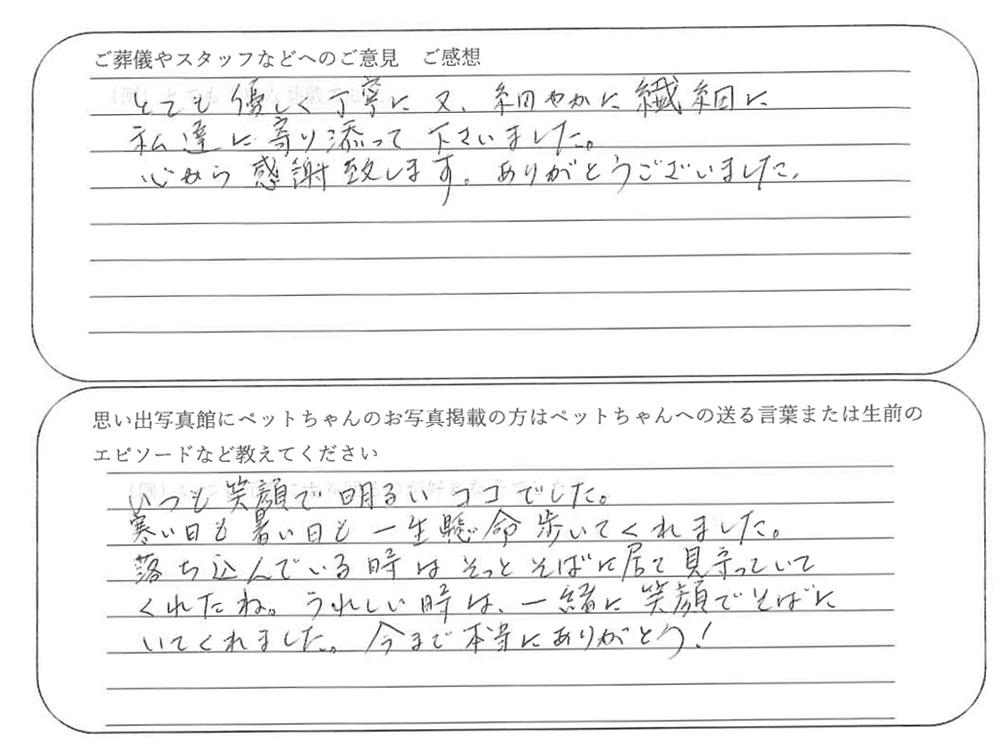 ご葬儀やスタッフなどへのご意見　ご感想
とても優しく丁寧に又、細やかに繊細に
私達に寄り添って下さいました。
心から感謝致します。ありがとうございました。
思い出写真館にペットちゃんのお写真掲載の方はペットちゃんへの送る言葉または生前の
エピソードなど教えてください
いつも笑顔で明るいココでした。
寒い日も暑い日も一生懸命歩いてくれました。
落ち込んでいる時はそっとそばに居て見守っていて
くれたね。うれしい時は、一緒に笑顔でそばに
いてくれました。今まで本当にありがとう!